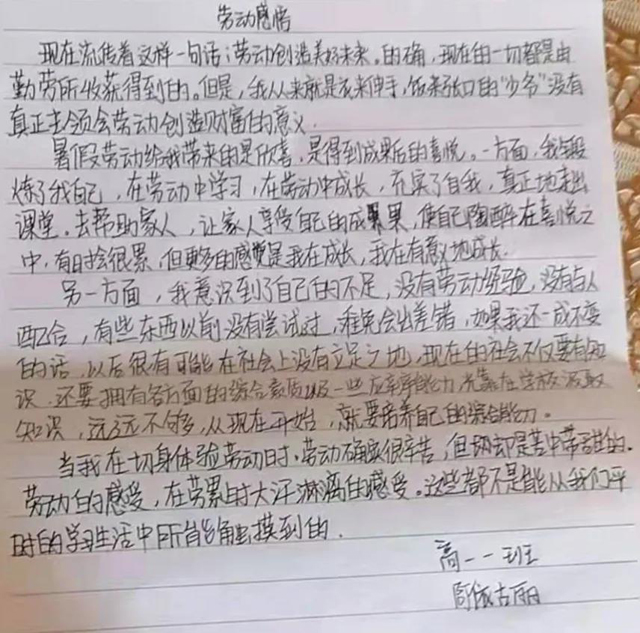 劳动感悟
现在流传着这样一句话:劳动创造美好未来。的确,现在的一切都是由
勤劳所收获得到的。但是,我从来就是衣来伸手,饭来张口的“少爷”没有
真正去领会劳动创造财富的意义.
暑假劳动给我带来的是欣喜,是得到成果后的喜悦。一方面,我锻
炼了我自己,在劳动中学习,在劳动中成长,充实了自我,真正地走出
课堂.去帮助家人,让家人享受自己的成果,使自己陶醉在喜悦之
中,有时会很累,但更多的感觉是我在成长,我在有意义地成长.
另一方面,我意识到了自己的不足,没有劳动经验,没有与人
配合,有些东西以前没有尝试过,难免会出差错,如果我还一成不变
的话,以后很有可能在社会上没有立足之地,现在的社会不仅要有知
识,还要拥有各方面的综合素质以及一些应变能力,光靠在学校汲取
知识,远远不够,从现在开始,就要培养自己的综合能力。
当我在切身体验劳动时,劳动确实很辛苦,但却是苦中带甜的.
劳动的感受,在劳累时大汗淋漓的感受。这些都不是能从我们平
时的学习生活中所能触摸到的.
高一一班
依古丽